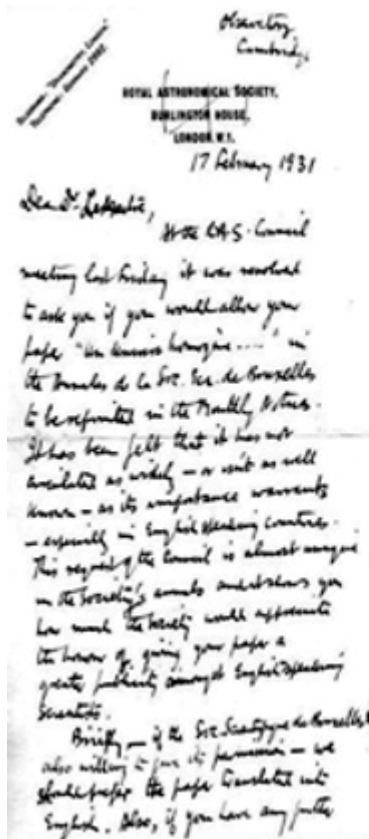 Observatory
Cambridge
ROYAL ASTRONOMICAL SOCIETY,
BURLINGTON HOUSE,
LONDON. W.1.
17 February 1931
Dear Dr. Lemaître,
At the R.A.S. Council
meeting last Friday it was resolved
to ask you if you would allow your
paper "Un Univers homogène...." in
the Annales de la Soc. Sci. de Bruxelles
to be reprinted in the Monthly Notices.
It has been felt that it has not
circulated as widely — or isn't as well
known — as its importance warrants
— especially in English speaking countries.
This request of the Council is almost unique
in the Society's annals and it shows you
how much the Society would appreciate
the honour of giving your paper a
greater publicity amongst English speaking
scientists.
Briefly — if the Soc. Scientifique de Bruxelles is
also willing to give its permission — we
should prefer the paper translated into
English. Also, if you have any further